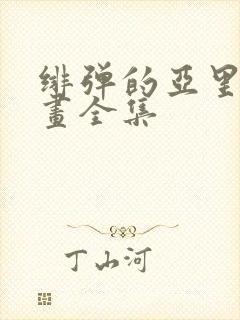 绯弹的亞里
畫全集
丁山河